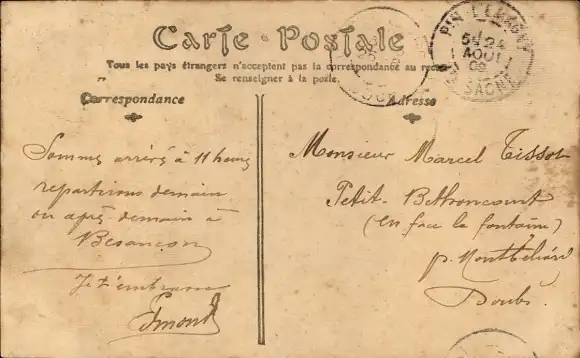 Carte Postale
Tous les pays étrangers n'acceptent pas la correspondance au recto
Se renseigner à la poste.
Correspondance
Adresse
Sommes arrivés à 11 heures
repartirons demain
ou après demain à
Besançon
Je t'embrasse
Edmond
Monsieur Marcel Tissot
Petit-Bethoncourt
(en face la fontaine)
p. Montbéliard
Doubs
AOUT
09
SAONE